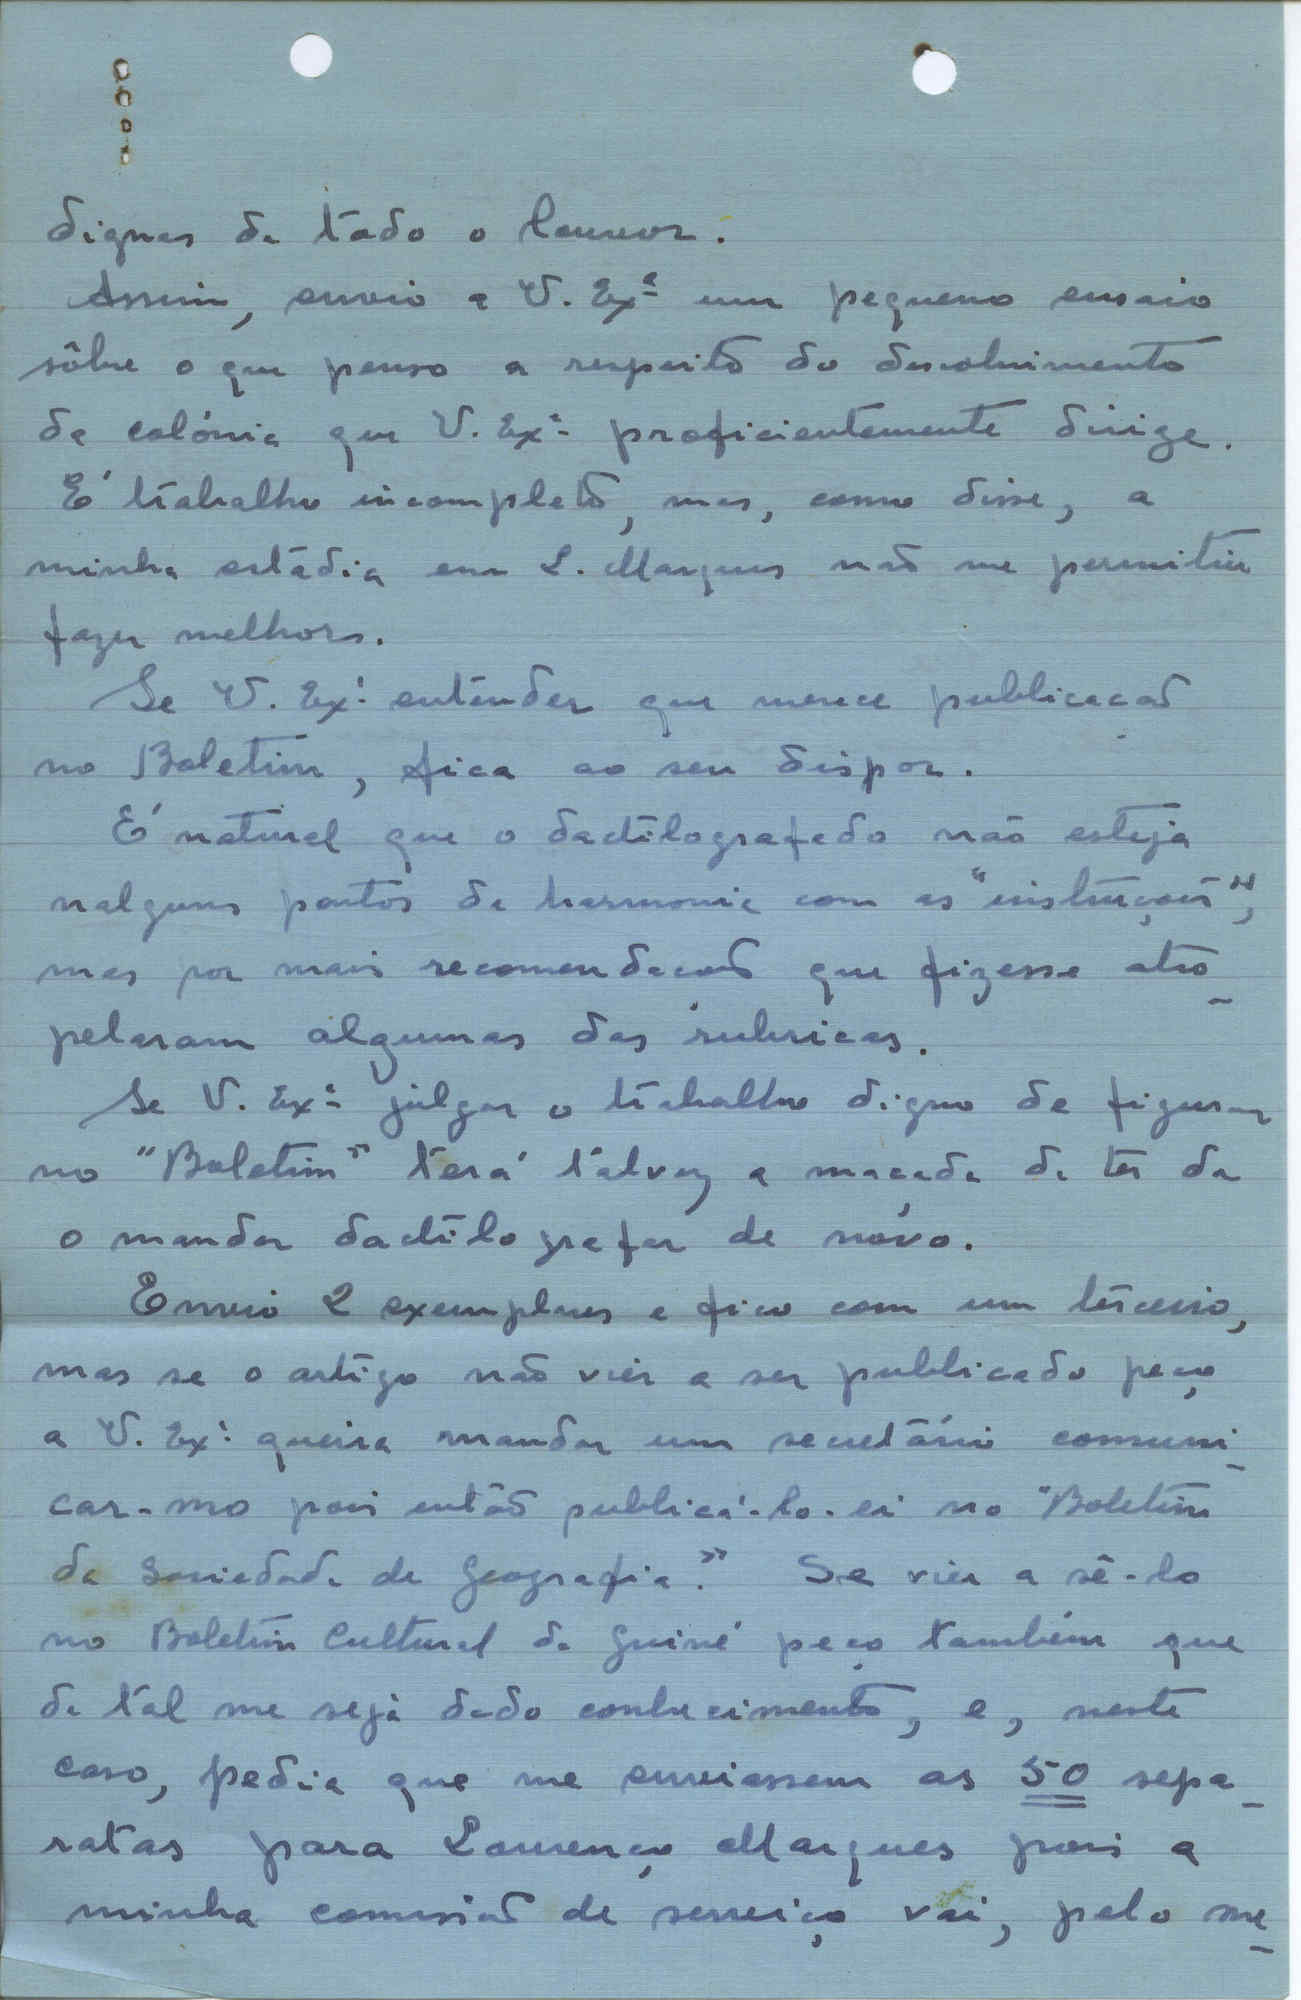 dignas de todo o louvor.
Assim, envio a V. Exª um pequeno ensaio
sôbre o que penso a respeito do descobrimento
da colónia que V. Exª proficientemente dirige.
E' trabalho incompleto, mas, como disse, a
minha estádia em L. Marques não me permitiu
fazer melhor.
Se V. Exª entender que merece publicação
no Boletim, fica ao seu dispor.
E' natural que o dactilografado não esteja
nalguns pontos de harmonia com as "instruções",
mas por mais recomendações que fizesse atro-
pelaram algumas das rubricas.
Se V. Exª julgar o trabalho digno de figurar
no "Boletim" terá talvez a maçada de ter de
o mandar dactilografar de novo.
Envio 2 exemplares e fico com um terceiro,
mas se o artigo não vier a ser publicado peço
a V. Exª queira mandar um secretário comuni-
car-mo pois então publicá-lo-ei no "Boletim
da Sociedade de Geografia." Se vier a sê-lo
no Boletim Cultural da Guiné peço também que
de tal me seja dado conhecimento, e, neste
caso, pedia que me enviassem as 50 sepa-
ratas para Lourenço Marques pois a
minha comissão de serviço vai, pelo me-